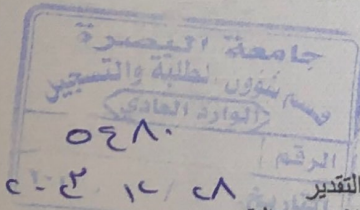 جامعة البصرة
قسم شؤون الطلبة والتسجيل
الوارد العادي
الرقم ٥٤٨٠
٢٨ / ١٢
التقدير